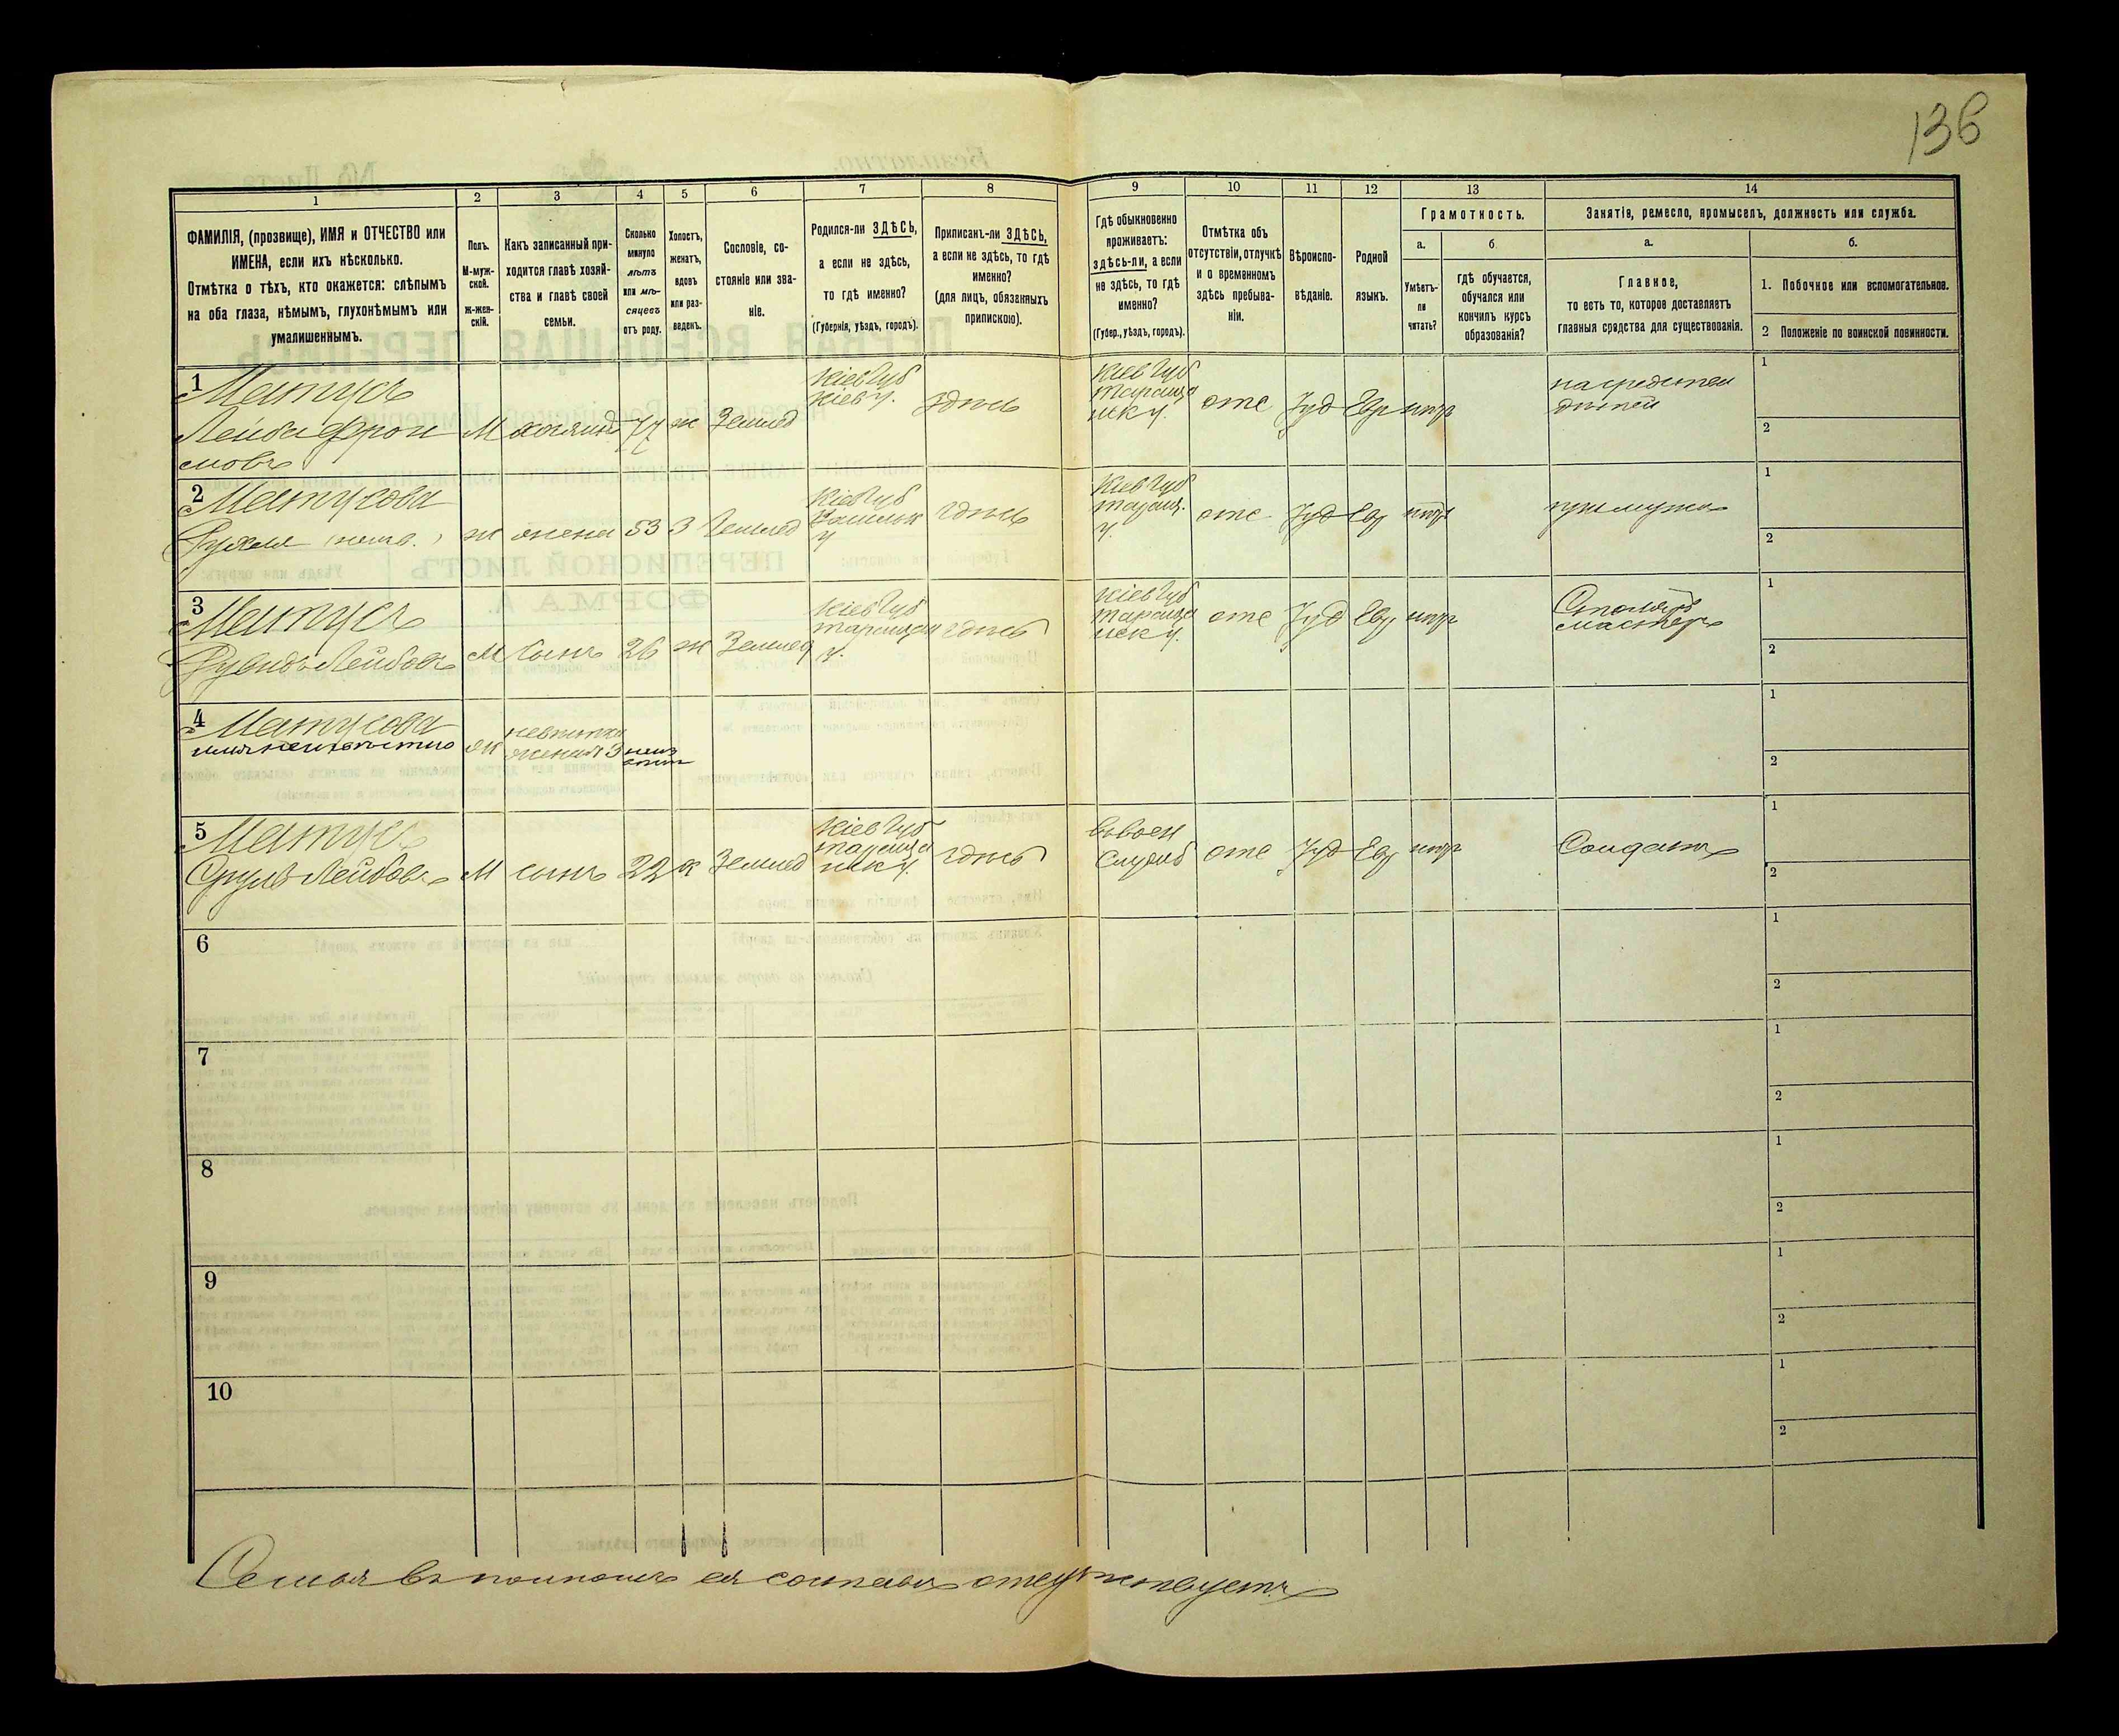 136
1 2 3 4 5 6 7 8 9 10 11 12 13 14
ФАМИЛІЯ, (прозвище), ИМЯ и ОТЧЕСТВО или
ИМЕНА, если ихъ нѣсколько.
Отмѣтка о тѣхъ, кто окажется: слѣпымъ
на оба глаза, нѣмымъ, глухонѣмымъ или
умалишеннымъ.
Полъ.
М-муж-
ской.
Ж-жен-
скій.
Какъ записанный при-
ходится главѣ хозяй-
ства и главѣ своей
семьи.
Сколько
минуло
лѣтъ
или мѣ-
сяцевъ
отъ роду.
Холостъ,
женатъ,
вдовъ
или раз-
веденъ.
Сословіе, со-
стояніе или зва-
ніе.
Родился-ли ЗДѢСЬ,
а если не здѣсь,
то гдѣ именно?
(Губернія, уѣздъ, городъ).
Приписан-ли ЗДѢСЬ,
а если не здѣсь, то гдѣ
именно?
(для лицъ, обязанныхъ
припискою).
Гдѣ обыкновенно
проживаетъ:
здѣсь-ли, а если
не здѣсь, то гдѣ
именно?
(Губер., уѣздъ, городъ).
Отмѣтка объ
отсутствіи, отлучкѣ
и о временномъ
здѣсь пребыва-
ніи.
Вѣроиспо-
вѣданіе.
Родной
языкъ.
Грамотность.
а.
Умѣетъ-
ли
читать?
б
гдѣ обучается,
обучался или
кончилъ курсъ
образованія?
Занятія, ремесло, промыселъ, должность или служба.
а.
Главное,
то есть то, которое доставляетъ
главныя средства для существованія.
б.
1. Побочное или вспомогательное.
2 Положеніе по воинской повинности.
1 Матусъ
Лейба
мовъ
М
77
ж
Землед
Кіев Губ
Кіев у.
здѣсь
Кіев Губ
Тараща
нск у.
отс
Іуд
Евр
на средства
дѣтей
1
2
2 Матусова
Рухля
ж
жена
53
З
Землед
Кіев Губ
у
здѣсь
Кіев Губ
Таращ.
у.
отс
Іуд
Евр
при мужѣ
1
2
3 Матусъ
Лейбовъ
М
сынъ
26
ж
Землед
Кіев Губ
у.
здѣсь
Кіев Губ
Тараща
нск у.
отс
Іуд
Евр
Столяръ
мастеръ
1
2
4 Матусова
имя неизвѣстно
ж
невѣстка
1
2
5 Матусъ
Сруль Лейбовъ
М
сынъ
22
х
Землед
Кіев Губ
Тараща
нск у.
здѣсь
въ воен
служб
отс
Іуд
Евр
Солдатъ
1
2
6
1
2
7
1
2
8
1
2
9
1
2
10
1
2
Семья въ полномъ ея составѣ отсутствуетъ